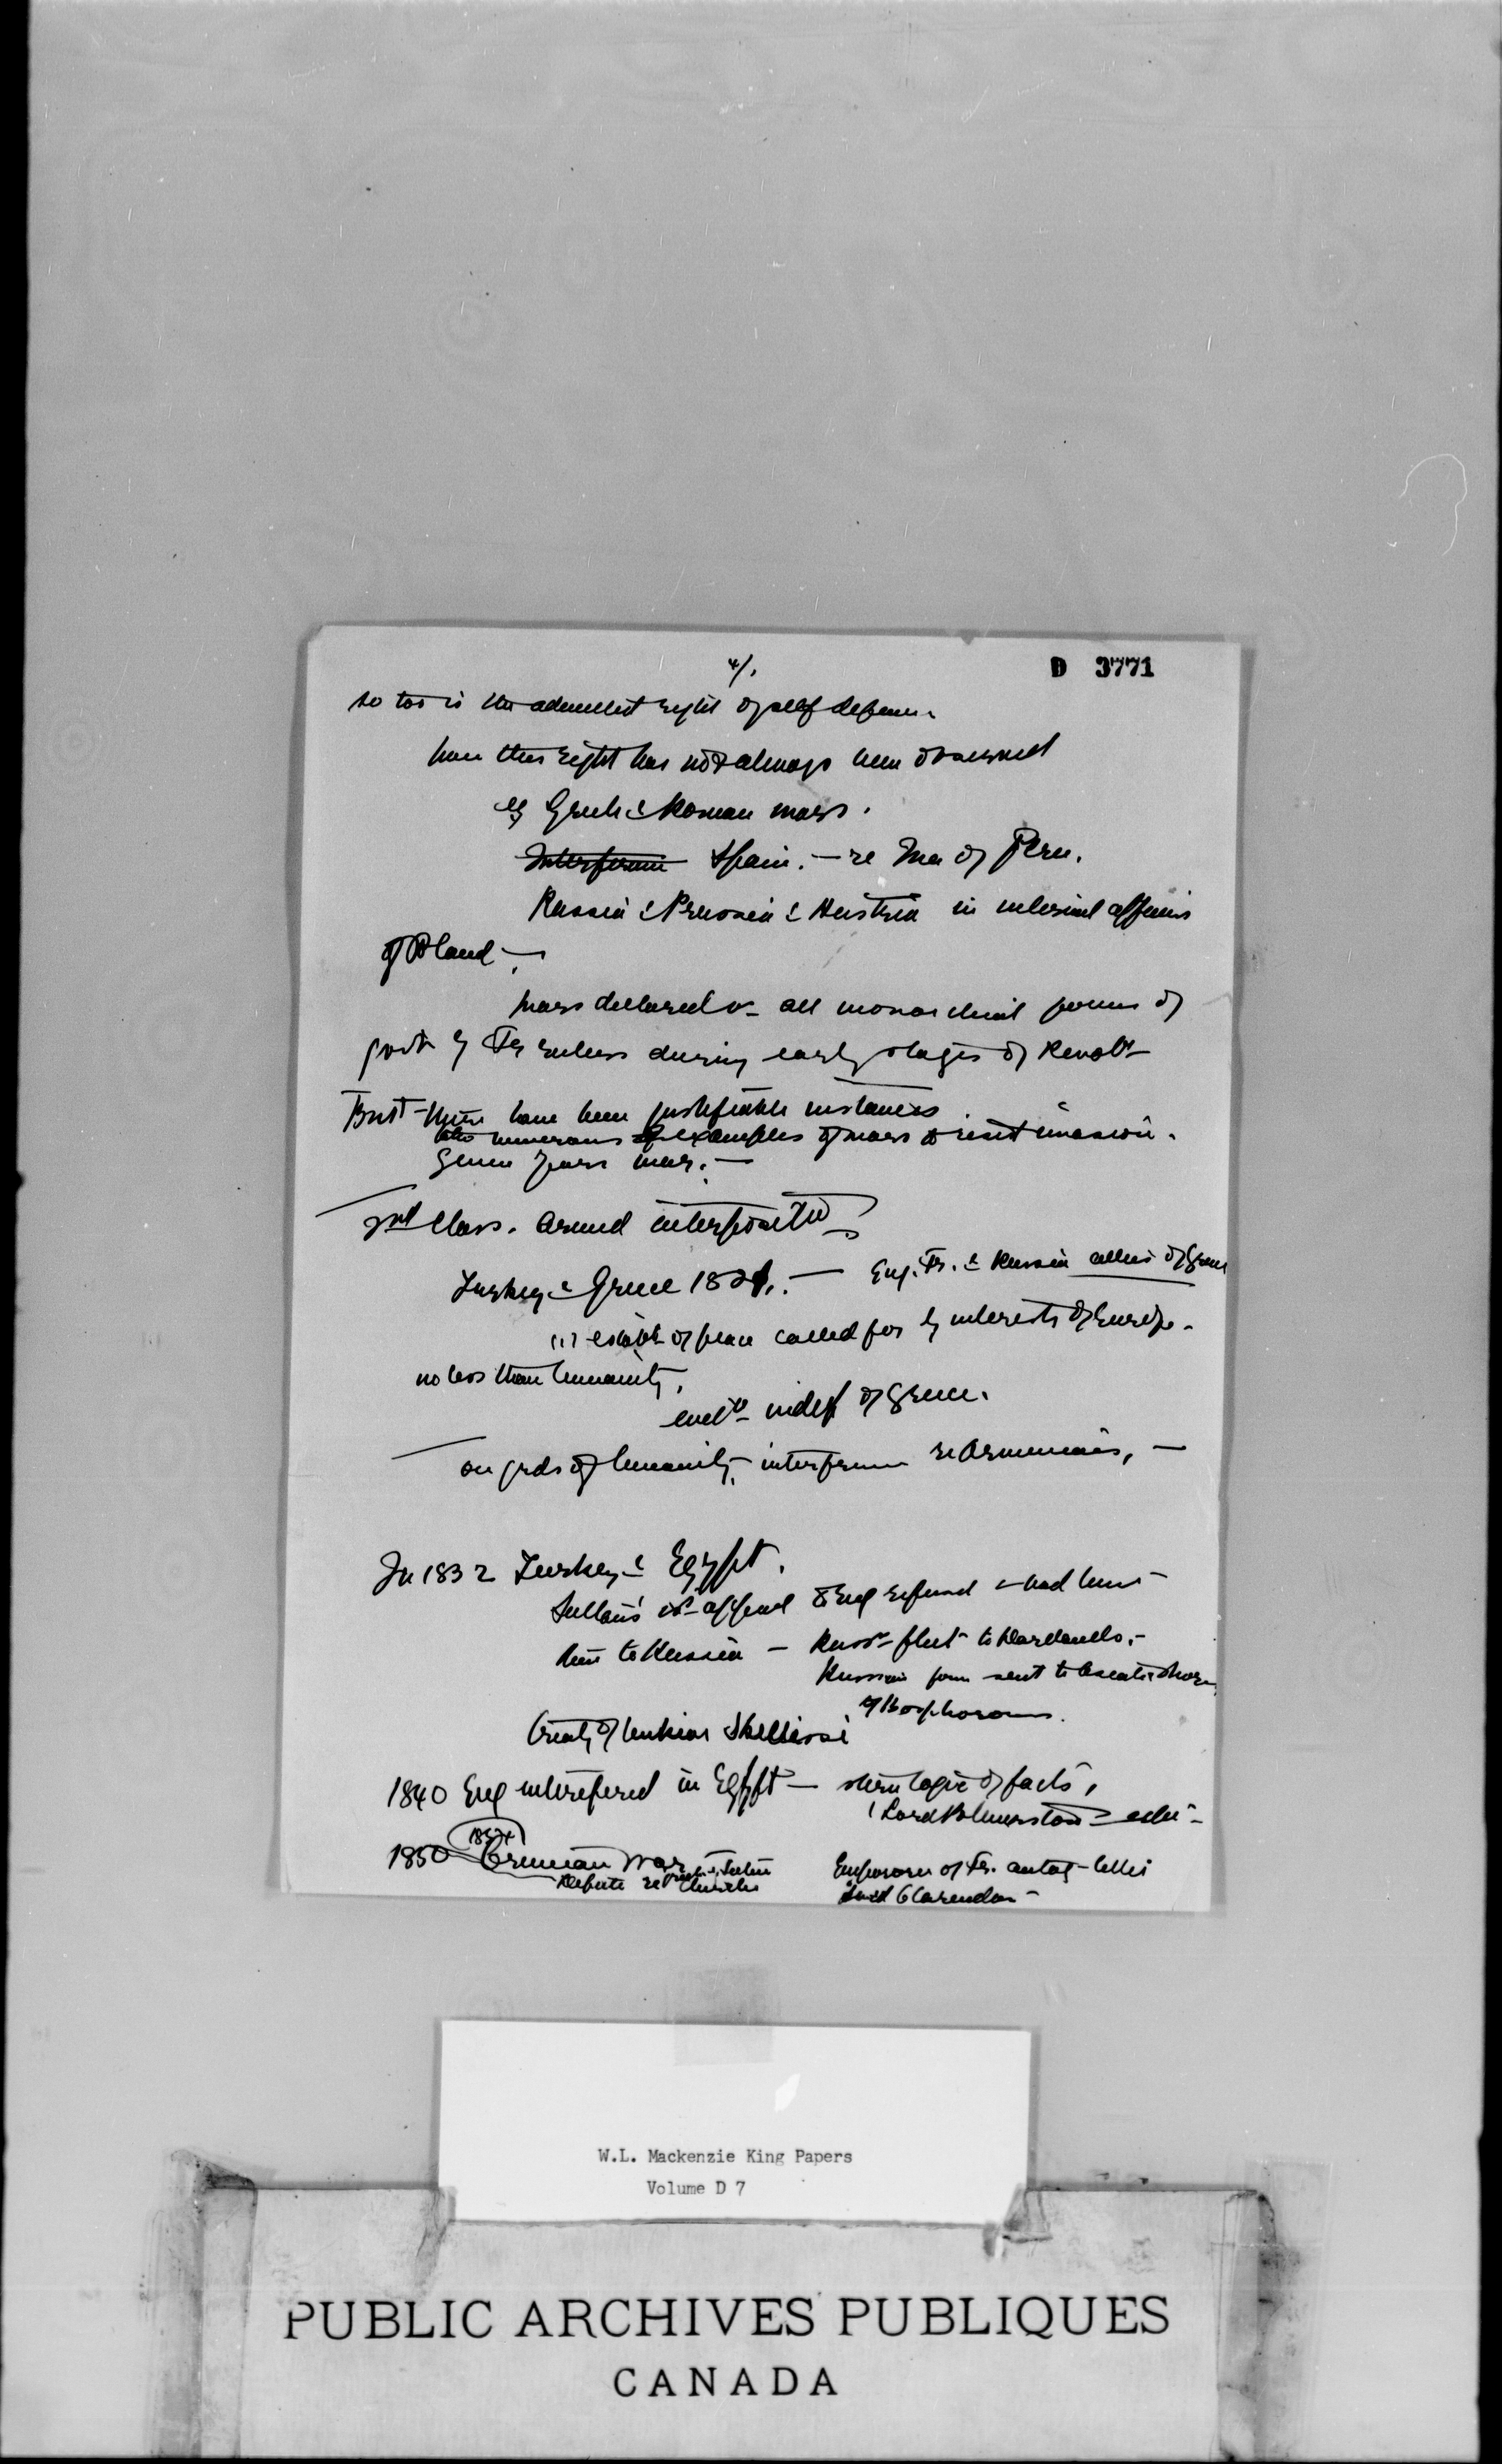 4/.
D 3771
so too is the admitted right of self defence.
how this right has not always been observed
eg Greek & Roman wars.
Interference Spain. — re Inca of Peru.
Russia & Prussia & Austria in internal affairs
of Poland —
wars declared vs all monarchical forms of
govt by Fr rulers during early stages of Revolt
But there have been justifiable instances
also numerous examples of wars to resist invasion.
Seven years war. —
2nd Class. Armed interposition
Turkey & Greece 182. — Eng. Fr. & Russia allies of Greece
(1) establ of peace called for by interests of Europe.
no less than humanity.
indep of Greece.
on grds of humanity, interference re Armenians, —
In 1832 Turkey & Egypt.
Sultan's 1st appeal to Eng refused & had
to Russia — Russn fleet to Dardanells. —
Russian force sent to Asiatic shore
of Bosphorous.
Treaty of Unkiar Skellessi
1840 Eng interefered in Egypt — stern logic of facts,
(Lord Palmerston
1854
1850 Crimean War
Debate re Greek & Latin Churches
Emperor of Fr. autog-letter
Lord Clarendon —
W.L. Mackenzie King Papers
Volume D 7
PUBLIC ARCHIVES PUBLIQUES
CANADA